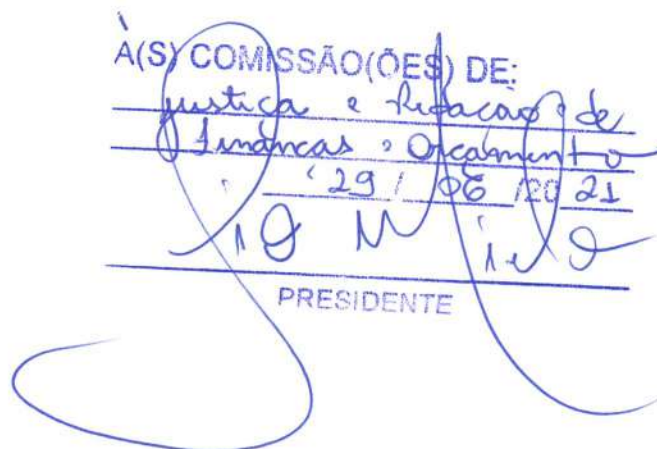 À(S) COMISSÃO(ÕES) DE:
Justiça e Redação; de
Finanças e Orçamento
29 / 06 /20 21
PRESIDENTE